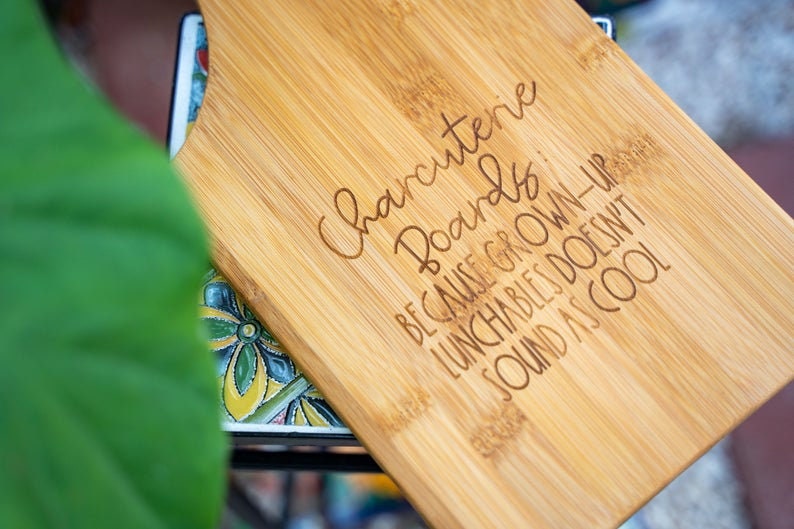 Charcuterie
Boards:
BECAUSE GROWN-UP
LUNCHABLES DOESN'T
SOUND AS COOL